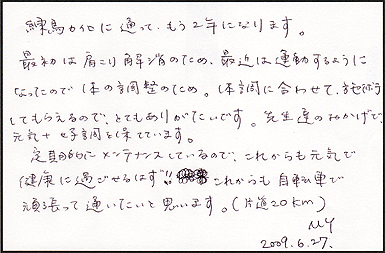 練馬カイロに通って、もう2年になります。
最初は肩こり解消のため、最近は運動するように
なったので体の調整のため。体調に合わせて、施術
してもらえるので、とてもありがたいです。先生達のおかげで、
元気+好調を保てています。
定期的にメンテナンスしているので、これからも元気で
健康に過ごせるはず!! これからも自転車で
頑張って通いたいと思います。(片道20km)
M.Y
2009.6.27.